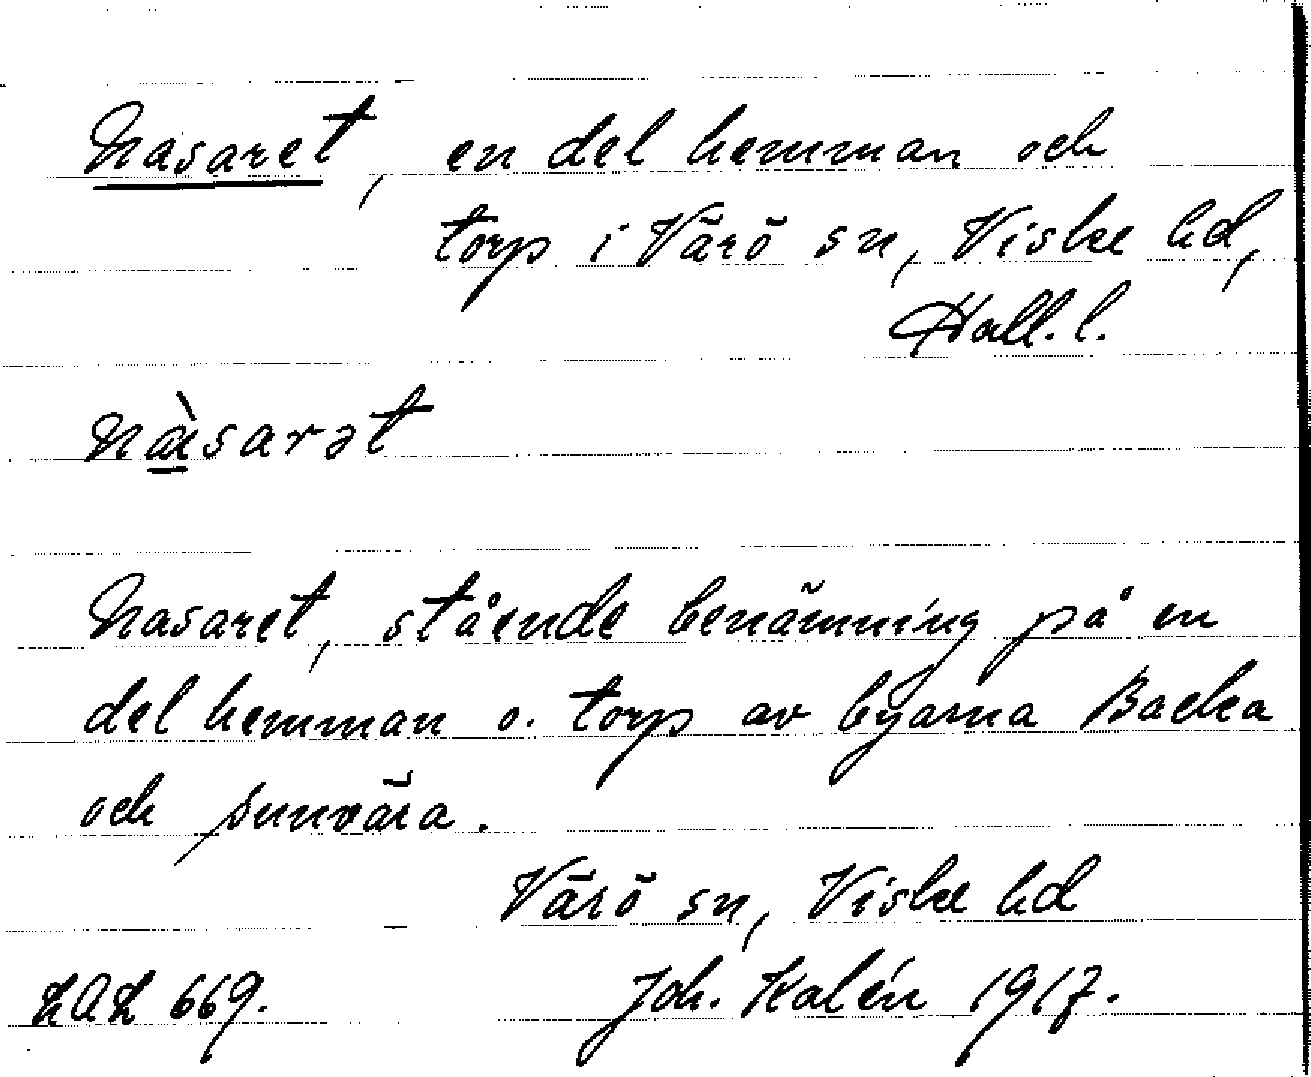 Nasaret, en del hemman och
torp i Värö sn, Viske hd,
Hall. l.
nàsarət
Nasaret, stående benämning på en
del hemman o. torp av byarna Backa
och Sunvära.
Värö sn, Viske hd
LAL 669. Joh. Kalén 1917.